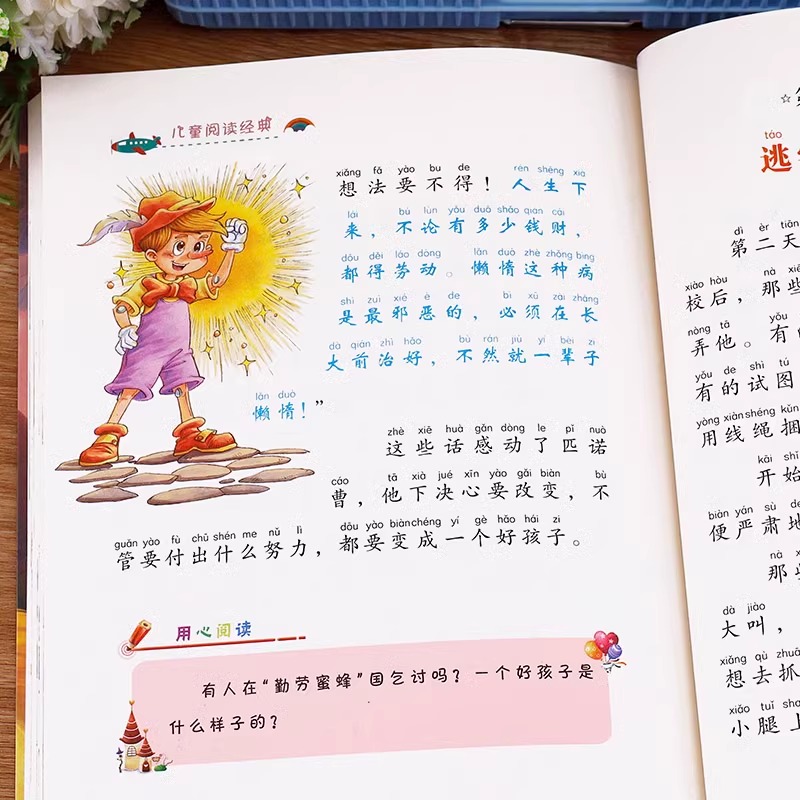 儿童阅读经典
xiǎng fǎ yào bu de rén shēng xià
想法要不得！人生下
lái bù lùn yǒu duō shǎo qián cái
来，不论有多少钱财，
dōu děi láo dòng lǎn duò zhè zhǒng bìng
都得劳动。懒惰这种病
shì zuì xié è de bì xū zài zhǎng
是最邪恶的，必须在长
dà qián zhì hǎo bù rán jiù yí bèi zi
大前治好，不然就一辈子
lǎn duò
懒惰！”
zhè xiē huà gǎn dòng le pǐ nuò
这些话感动了匹诺
cáo tā xià jué xīn yào gǎi biàn bù
曹，他下决心要改变，不
guǎn yào fù chū shén me nǔ lì dōu yào biàn chéng yí gè hǎo hái zi
管要付出什么努力，都要变成一个好孩子。
用心阅读
有人在“勤劳蜜蜂”国乞讨吗？一个好孩子是
什么样子的？
táo
逃
dì èr tiān
第二天
xiào hòu nà xiē
校后，那些
nòng tā yǒu
弄他。有的
yǒu de shì tú
有的试图
yòng xiàn shéng kǔn
用线绳捆
kāi shǐ
开始
biàn yán sù de
便严肃地
nà
那些
dà jiào
大叫，
xiǎng qù zhuā
想去抓
xiǎo tuǐ shang
小腿上